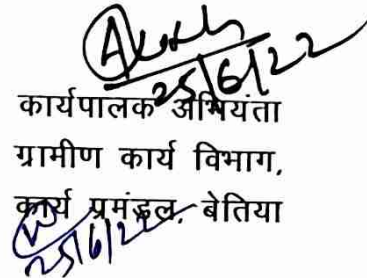 25/6/22
कार्यपालक अभियंता
ग्रामीण कार्य विभाग,
कार्य प्रमंडल, बेतिया
25/6/22